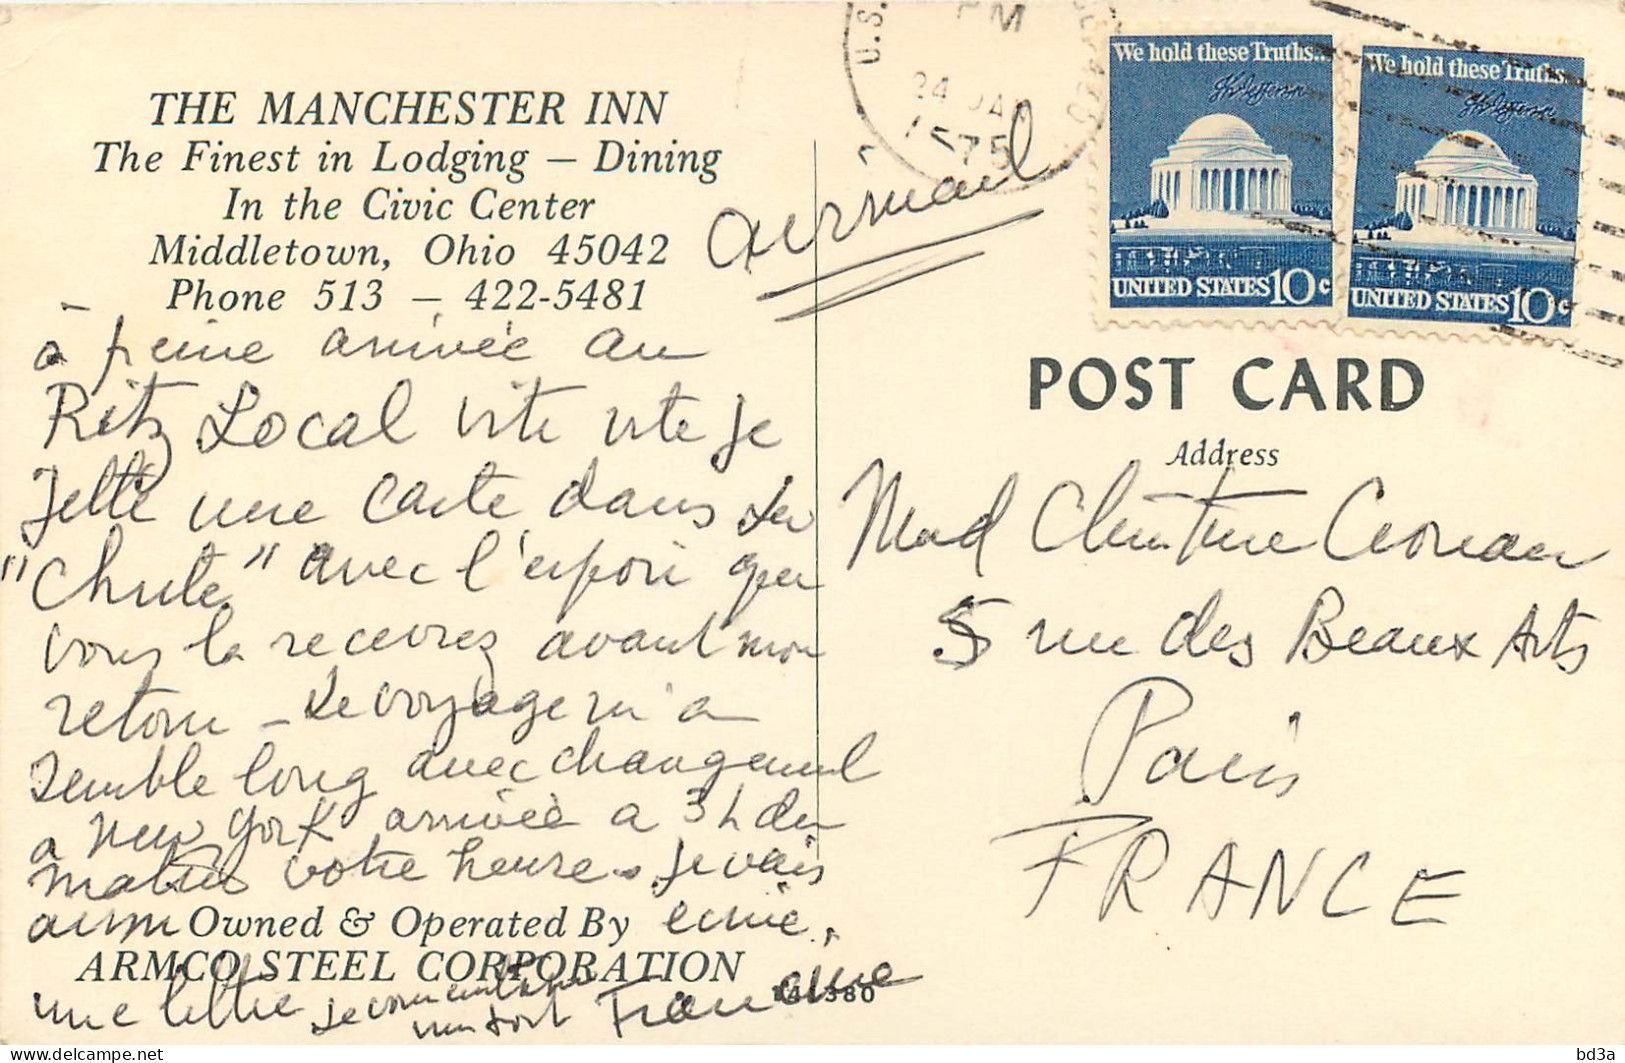 THE MANCHESTER INN
The Finest in Lodging – Dining
In the Civic Center
Middletown, Ohio 45042
Phone 513 – 422-5481
à peine arrivée au
Ritz Local vite vite je
jette une carte dans la
"Chute" avec l'espoir que
vous la recevrez avant mon
retour – Le voyage m'a
semblé long avec changement
a New York arrivée a 3h du
matin votre heure. Je vais
aussi écrire
Owned & Operated By
ARMCO STEEL CORPORATION
une lettre je vous embrasse
fort Francine
141380
airmail
U.S.
PM
24
1975
We hold these Truths...
Th Jefferson
UNITED STATES 10c
We hold these Truths...
Th Jefferson
UNITED STATES 10c
POST CARD
Address
Mad Christine
5 rue des Beaux Arts
Paris
FRANCE
bd3a